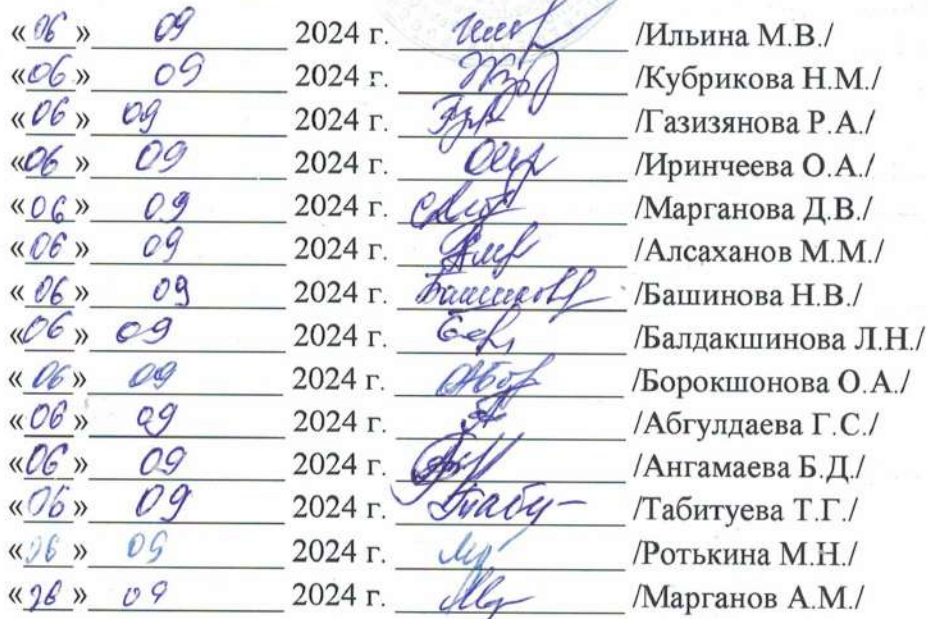 «06» 09 2024 г. /Ильина М.В./
«06» 09 2024 г. /Кубрикова Н.М./
«06» 09 2024 г. /Газизянова Р.А./
«06» 09 2024 г. /Иринчеева О.А./
«06» 09 2024 г. /Марганова Д.В./
«06» 09 2024 г. /Алсаханов М.М./
«06» 09 2024 г. /Башинова Н.В./
«06» 09 2024 г. /Балдакшинова Л.Н./
«06» 09 2024 г. /Борокшонова О.А./
«06» 09 2024 г. /Абгулдаева Г.С./
«06» 09 2024 г. /Ангамаева Б.Д./
«06» 09 2024 г. /Табитуева Т.Г./
«06» 09 2024 г. /Ротькина М.Н./
«06» 09 2024 г. /Марганов А.М./